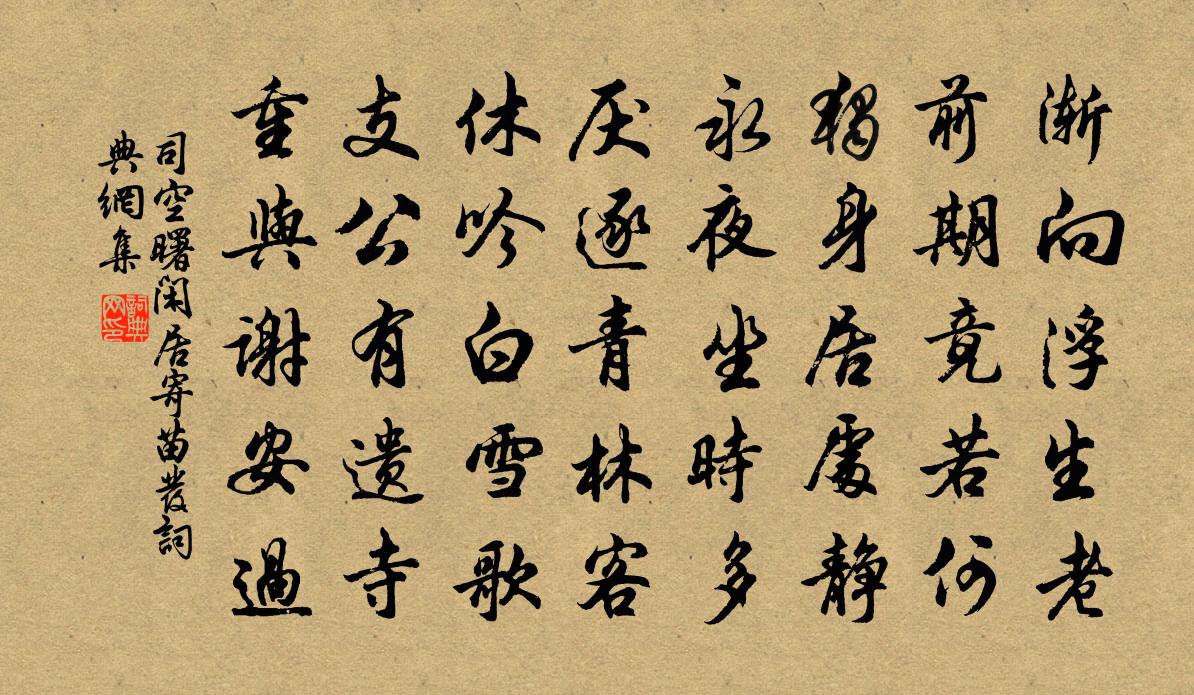 漸向浮生老
前期竟若何
獨身居處静
永夜坐時多
厌逐青林客
休吟白雪歌
支公有遺寺
重與謝安過
司空曙閑居寄苗發詞
典網集
詞典
网印